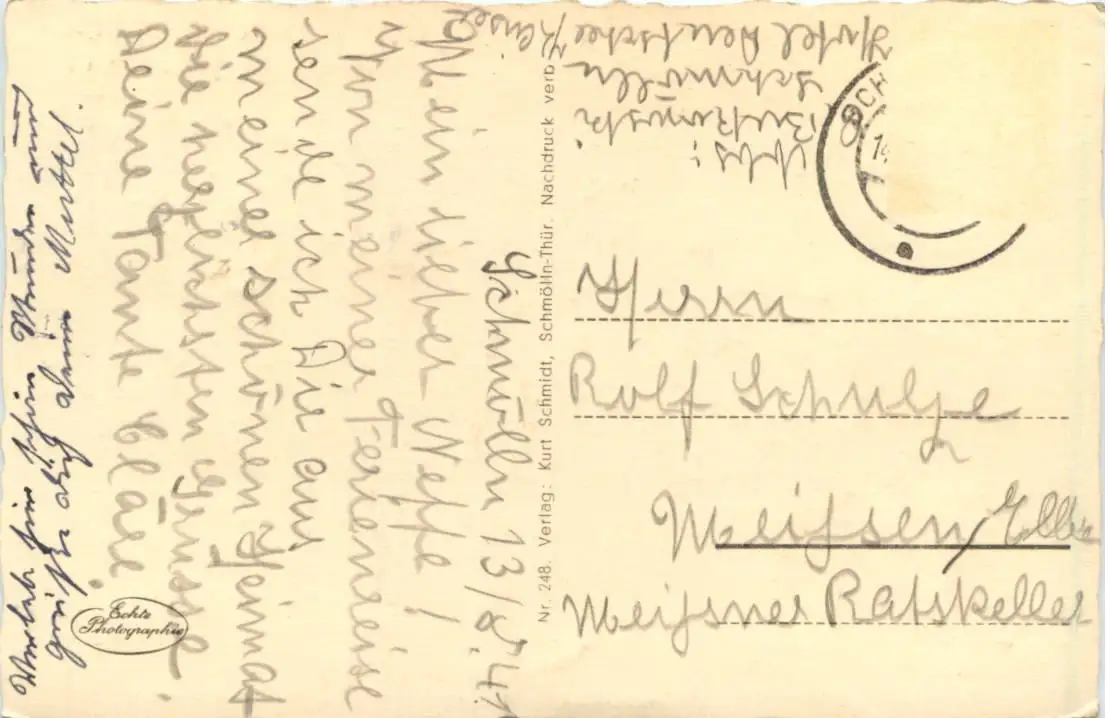 Schmölln 13/8.41
Mein lieber Neffe!
Von meiner Ferienreise
sende ich Dir aus
meiner schönen Heimat
die herzlichsten Grüsse.
Deine Tante Cläre.
hier schöne Stunden und
dich dein Muttel.
Echte
Photographie
Nr. 248. Verlag: Kurt Schmidt, Schmölln-Thür. Nachdruck verb.
Abs:
Schmölln
Hotel Deutscher Kaiser
SCH
14.
Herrn
Rolf Schulze
Meißen/Elbe
Meißner Ratskeller